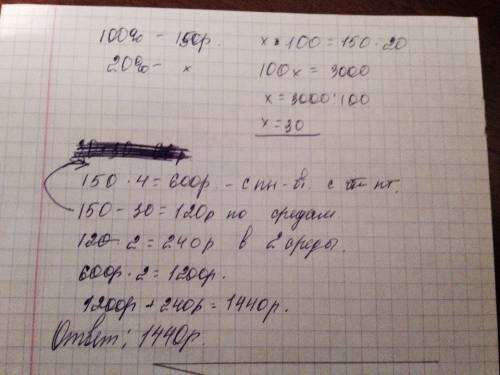 100% - 150р.
20% - x
x · 100 = 150 · 20
100x = 3000
x = 3000 : 100
x = 30
150 · 4 = 600р - с пн - с пт.
150 - 30 = 120р по средам
120 · 2 = 240р в 2 среды.
600р · 2 = 1200р.
1200р + 240р = 1440р.
Ответ: 1440р.